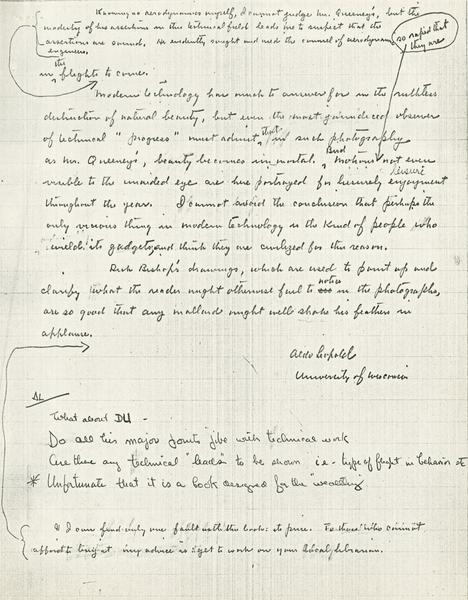 Knowing no aerodynamics myself, I cannot judge Mr. Queeney's, but the
modesty of his assertions in this technical field leads me to suspect that the
assertions are sound. He evidently sought and used the counsel of aerodynamic
engineers.
so rapid that
they are
the
in flights to come.
Modern technology has much to answer for in the ruthless
destruction of natural beauty, but even the most jaundiced observer
of technical "progress" must admit that in such photography
as Mr. Queeney's, beauty becomes immortal. Bird motions not even
visible to the unaided eye are here portrayed for leisurely enjoyment
leisure
throughout the year. I cannot avoid the conclusion that perhaps the
only vicious thing in modern technology is the kind of people who
wield its gadgets, and think they are civilized for this reason.
Dick Bishop's drawings, which are used to point up and
clarify what the reader might otherwise fail to notice in the photographs,
are so good that any mallard might well shake his feathers in
applause.
Aldo Leopold
University of Wisconsin
AL
What about DU -
Do all his major points jibe with technical work
Are there any technical "leads" to be shown i.e. - type of flight in behavior etc
* Unfortunate that it is a book designed for the "wealthy
I can find only one fault with the book: its price. To those who cannot
afford to buy it my advice is: get to work on your local librarian.